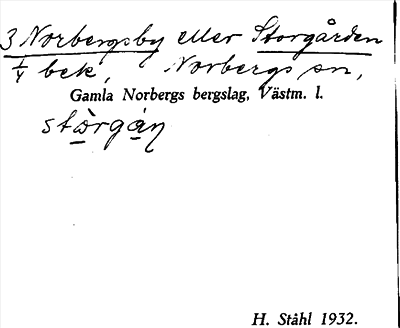 3 Norbergsby eller Storgården
1/4 bek, Norbergs sn,
Gamla Norbergs bergslag, Västm. l.
stårgån
H. Ståhl 1932.